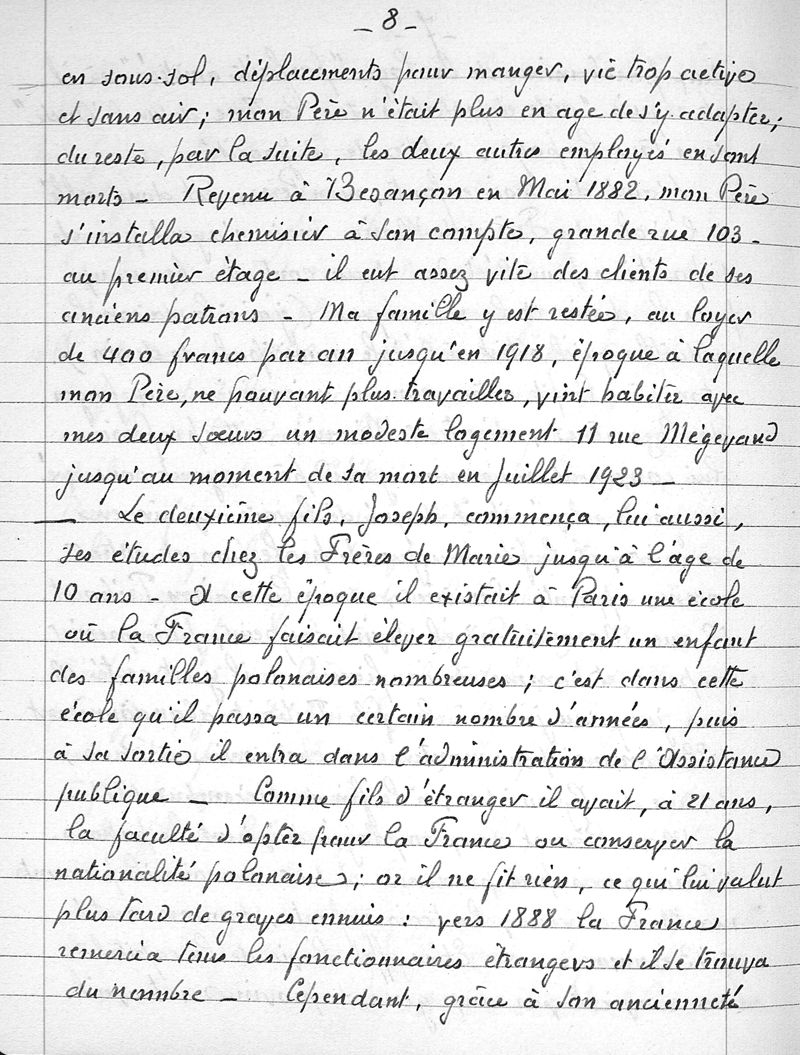 - 8 -
en sous-sol, déplacements pour manger, vie trop active
et sans air ; mon Père n'était plus en age de s'y adapter ;
du reste, par la suite, les deux autres employés en sont
morts - Revenu à Besançon en Mai 1882, mon Père
s'installa chemisier à son compte, grande rue 103 -
au premier étage - il eut assez vite des clients de ses
anciens patrons - Ma famille y est restée, au loyer
de 400 francs par an jusqu'en 1918, époque à laquelle
mon Père, ne pouvant plus travailler, vint habiter avec
mes deux soeurs un modeste logement 11 rue Mégevand
jusqu'au moment de sa mort en Juillet 1923 -
- Le deuxième fils, Joseph, commença, lui aussi,
ses études chez les Frères de Marie jusqu'à l'age de
10 ans - A cette époque il existait à Paris une école
où la France faisait élever gratuitement un enfant
des familles polonaises nombreuses ; c'est dans cette
école qu'il passa un certain nombre d'années, puis
à sa sortie il entra dans l'administration de l'Assistance
publique - Comme fils d'étranger il avait, à 21 ans,
la faculté d'opter pour la France ou conserver la
nationalité polonaise ; or il ne fit rien, ce qui lui valut
plus tard de graves ennuis : vers 1888 la France
remercia tous les fonctionnaires étrangers et il se trouva
du nombre - Cependant, grâce à son ancienneté